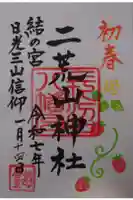 初春
二荒山神社
結の宮　令和七年
日光三山信仰　一月十四日